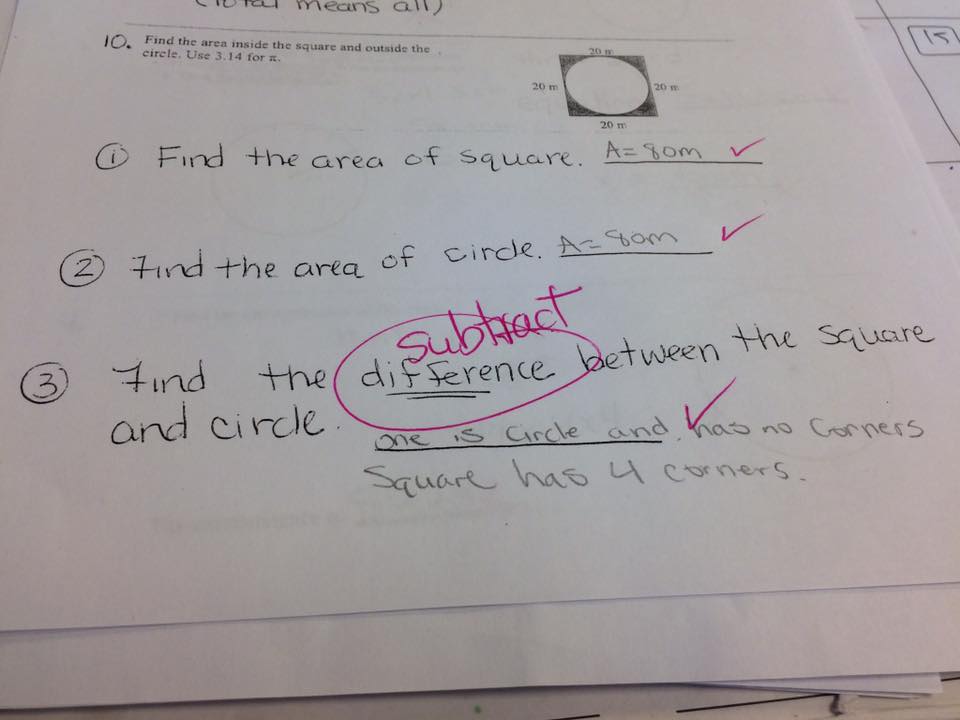 (Total means all)
15
10. Find the area inside the square and outside the
circle. Use 3.14 for π.
20 m
20 m
20 m
20 m
① Find the area of square. A=80m ✓
② Find the area of circle. A=80m ✓
subtract
③ Find the difference between the square
and circle.
one is circle and has no corners
Square has 4 corners.